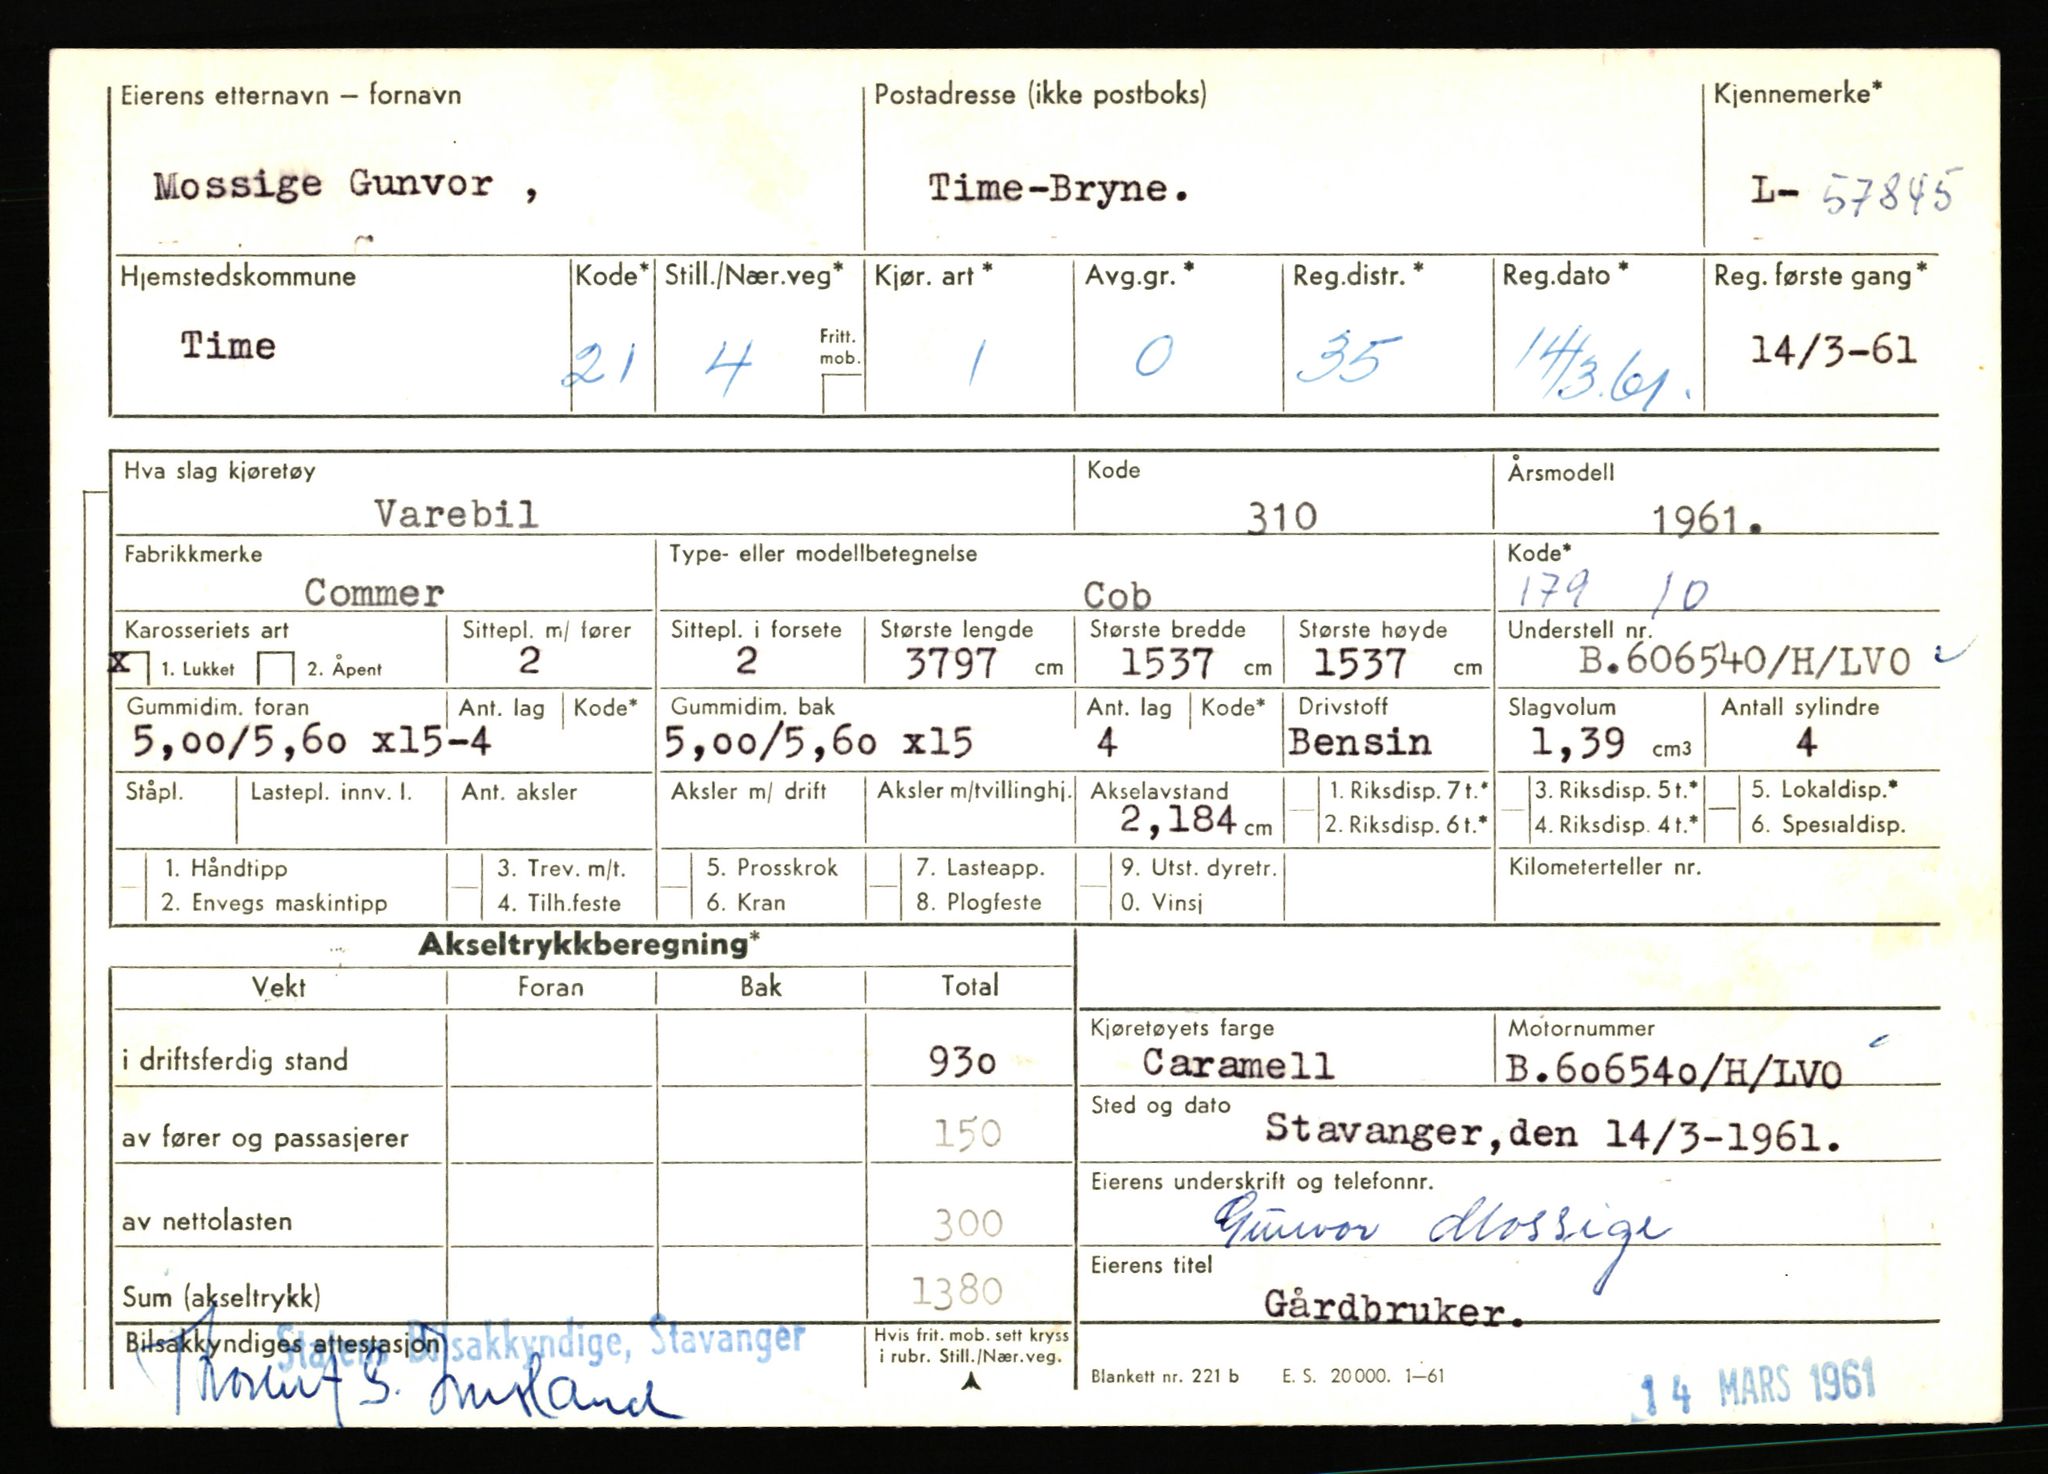 Eierens etternavn – fornavn Postadresse (ikke postboks) Kjennemerke*
Mossige Gunvor , Time-Bryne. L- 57845
Hjemstedskommune Kode* Still./Nær.veg* Kjør. art * Avg.gr. * Reg.distr. * Reg.dato * Reg. første gang*
Time 21 4 Fritt. mob. 1 0 35 14/3.61. 14/3-61
Hva slag kjøretøy Kode Årsmodell
Varebil 310 1961.
Fabrikkmerke Type- eller modellbetegnelse Kode*
Commer Cob 179 10
Karosseriets art Sittepl. m/ fører Sittepl. i forsete Største lengde Største bredde Største høyde Understell nr.
x 1. Lukket 2. Åpent 2 2 3797 cm 1537 cm 1537 cm B.606540/H/LVO
Gummidim. foran Ant. lag Kode* Gummidim. bak Ant. lag Kode* Drivstoff Slagvolum Antall sylindre
5,00/5,60 x15-4 5,00/5,60 x15 4 Bensin 1,39 cm3 4
Ståpl. Lastepl. innv. l. Ant. aksler Aksler m/ drift Aksler m/tvillinghj. Akselavstand 1. Riksdisp. 7 t.* 3. Riksdisp. 5 t.* 5. Lokaldisp.*
2,184 cm 2. Riksdisp. 6 t.* 4. Riksdisp. 4 t.* 6. Spesialdisp.
1. Håndtipp 3. Trev. m/t. 5. Prosskrok 7. Lasteapp. 9. Utst. dyretr. Kilometerteller nr.
2. Envegs maskintipp 4. Tilh.feste 6. Kran 8. Plogfeste 0. Vinsj
Akseltrykkberegning*
Vekt Foran Bak Total
Kjøretøyets farge Motornummer
i driftsferdig stand 930 Caramell B.606540/H/LVO
Sted og dato
av fører og passasjerer 150 Stavanger,den 14/3-1961.
Eierens underskrift og telefonnr.
av nettolasten 300 Gunvor Mossige
Eierens titel
Sum (akseltrykk) 1380 Gårdbruker.
Bilsakkyndiges attestasjon Statens Bilsakkyndige, Stavanger Hvis frit. mob. sett kryss
i rubr. Still./Nær.veg.
Blankett nr. 221 b E. S. 20000. 1–61 14 MARS 1961